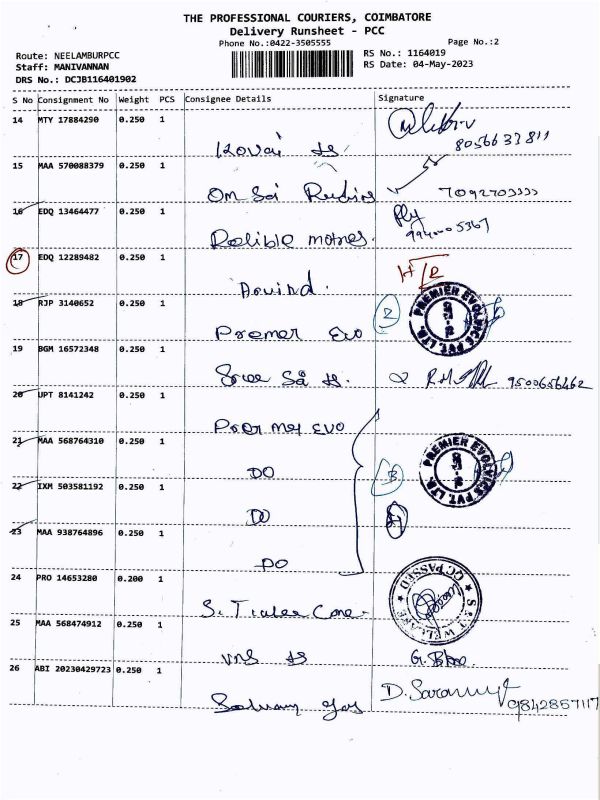 THE PROFESSIONAL COURIERS, COIMBATORE
Delivery Runsheet - PCC
Phone No.:0422-3505555 Page No.:2
Route: NEELAMBURPCC RS No.: 1164019
Staff: MANIVANNAN RS Date: 04-May-2023
DRS No.: DCJB116401902
S No Consignment No Weight PCS Consignee Details Signature
14 MTY 17884290 0.250 1
Kovai 8056633811
15 MAA 570088379 0.250 1
Om Sai
16 EDQ 13464477 0.250 1
Relible motres.
17 EDQ 12289482 0.250 1
Arvind.
18 RJP 3140652 0.250 1 2 PREMIER EVOLVICS PVT. LTD.
Premer Evo
19 BGM 16572348 0.250 1
Sree Sai 9500656462
20 UPT 8141242 0.250 1
Premer Evo
21 MAA 568764310 0.250 1 3 PREMIER EVOLVICS PVT. LTD.
DO
22 IXM 503581192 0.250 1
DO
23 MAA 938764896 0.250 1
DO
24 PRO 14653280 0.200 1 GC PASSED
S.
25 MAA 568474912 0.250 1
VMS
26 ABI 20230429723 0.250 1 D. 9842857117